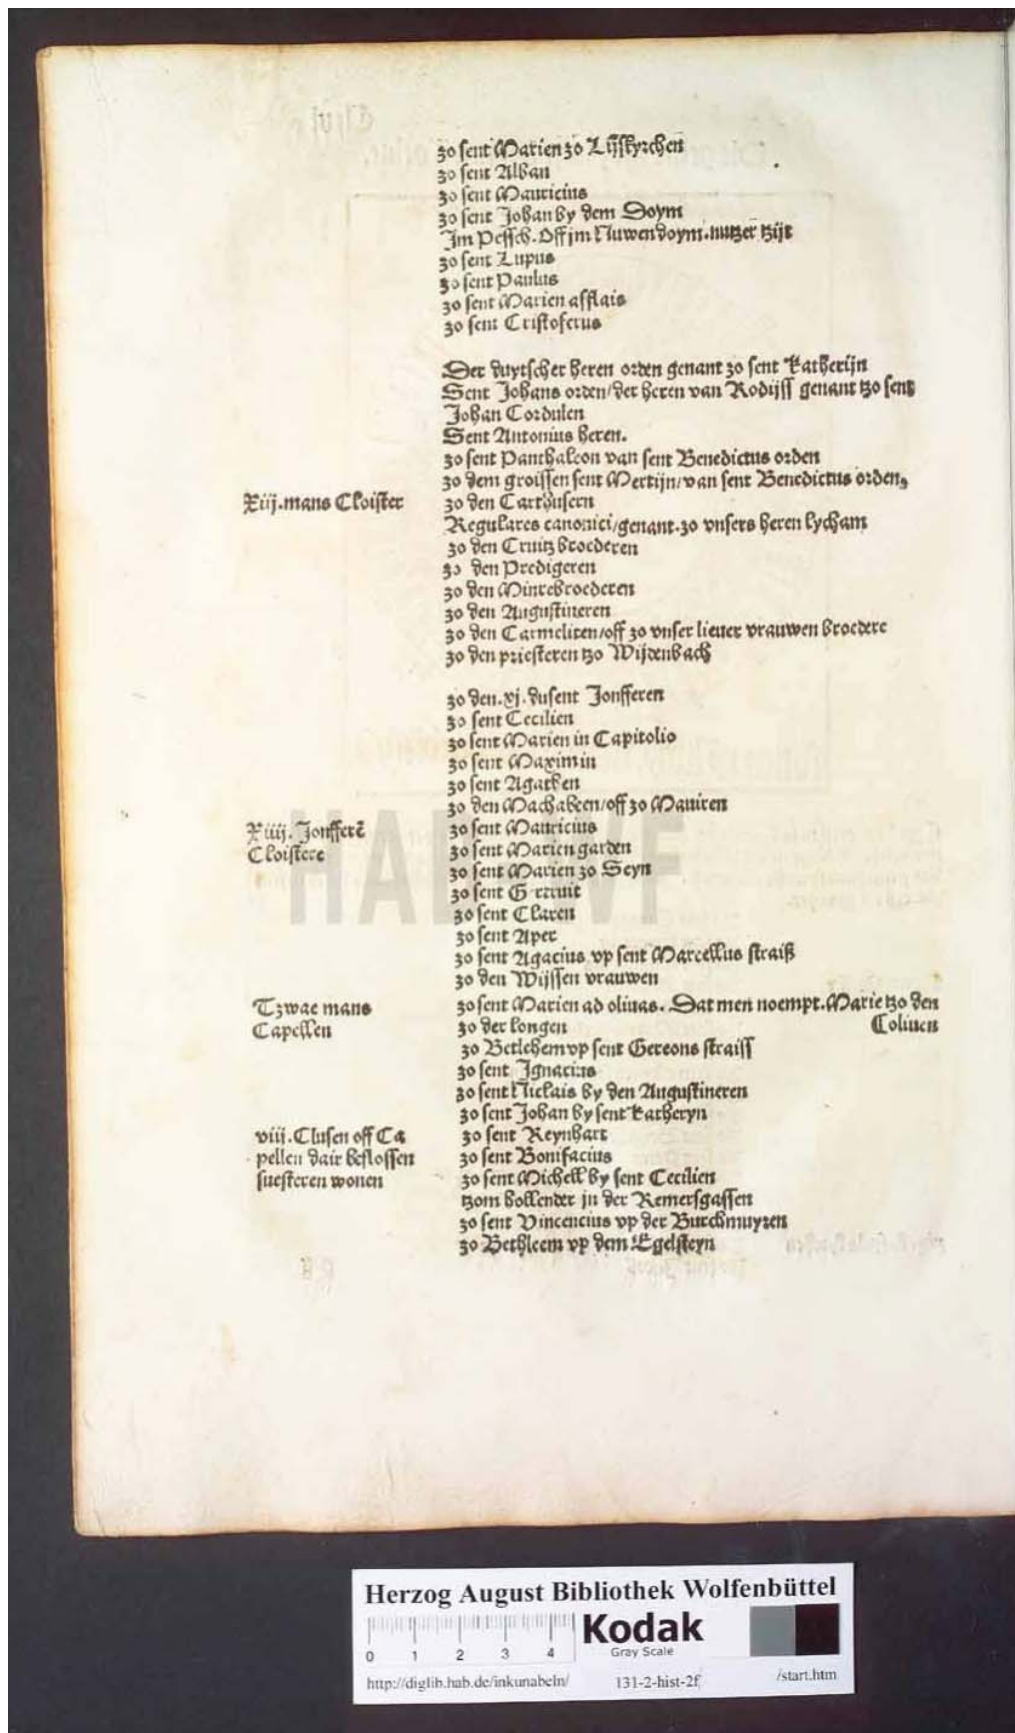 zo sent Marien zo Lijskyrchen
zo sent Alban
zo sent Mauricius
zo sent Johan by dem Doym
Im Pessch. Off jm Nuwen doym. nutzer tzijt
zo sent Lupus
zo sent Paulus
zo sent Marien afflais
zo sent Cristoferus
Der duytscher heren orden genant zo sent Katherijn
Sent Johans orden/der heren van Rodijss genant tzo sent
Johan Cordulen
Sent Antonius heren.
zo sent Panthaleon van sent Benedictus orden
zo dem groissen sent Mertijn/van sent Benedictus orden,
Xiij.mans Cloister
zo den Carthusern
Regulares canonici/genant.zo vnsers heren lycham
zo den Cruitzbroederen
zo den Predigeren
zo den Minrebroederen
zo den Augustineren
zo den Carmeliten/off zo vnser lieuer vrauwen broedere
zo den priesteren tzo Wijdenbach
zo den.xj.dusent Jonfferen
zo sent Cecilien
zo sent Marien in Capitolio
zo sent Maximin
zo sent Agathen
zo den Machabeen/off zo Mauiren
Xiiij.Jonfferē
Cloistere
zo sent Mauricius
zo sent Marien garden
zo sent Marien zo Seyn
zo sent Gertruit
zo sent Claren
zo sent Aper
zo sent Agacius vp sent Marcellus straiß
zo den Wijssen vrauwen
Tzwae mans
Capellen
zo sent Marien ad oliuas. Dat men noempt.Marie tzo den
zo der longen Coliuen
zo Betlehem vp sent Gereons straiss
zo sent Ignacius
zo sent Niclais by den Augustineren
zo sent Johan by sent Katheryn
viij.Clusen off Ca
pellen dair beslossen
suesteren wonen
zo sent Reynhart
zo sent Bonifacius
zo sent Michell by sent Cecilien
tzom bollender jn der Remersgassen
zo sent Vincencius vp der Burchmuyren
zo Bethleem vp dem Egelsteyn
HAB WF
Herzog August Bibliothek Wolfenbüttel
0 1 2 3 4
Kodak
Gray Scale
http://diglib.hab.de/inkunabeln/ 131-2-hist-2f /start.htm